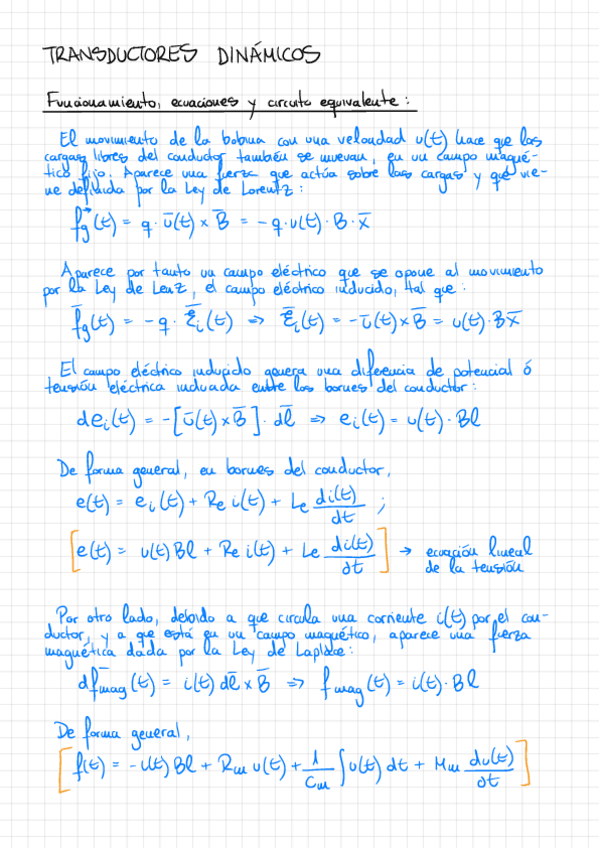 TRANSDUCTORES DINÁMICOS
Funcionamiento, ecuaciones y circuito equivalente:
El movimiento de la bobina con una velocidad u(t) hace que las
cargas libres del conductor también se muevan, en un campo magné-
tico fijo. Aparece una fuerza que actúa sobre las cargas y que vie-
ne definida por la Ley de Lorentz:
f⃗g(t) = q · ū(t) × B̄ = - q · u(t) · B · x̄
Aparece por tanto un campo eléctrico que se opone al movimiento
por la Ley de Lenz, el campo eléctrico inducido, tal que:
f̄g(t) = - q · ℰ̄i(t) ⇒ ℰ̄i(t) = - ū(t) × B̄ = u(t) · B x̄
El campo eléctrico inducido genera una diferencia de potencial ó
tensión eléctrica inducida entre los bornes del conductor:
dei(t) = - [ū(t) × B̄] · dl̄ ⇒ ei(t) = u(t) · Bl
De forma general, en bornes del conductor,
e(t) = ei(t) + Re i(t) + Le di(t)/dt ;
[e(t) = u(t) Bl + Re i(t) + Le di(t)/dt] → ecuación lineal
de la tensión
Por otro lado, debido a que circula una corriente i(t) por el con-
ductor, y a que está en un campo magnético, aparece una fuerza
magnética dada por la Ley de Laplace:
df̄mag(t) = i(t) dl̄ × B̄ ⇒ fmag(t) = i(t) · Bl
De forma general,
[f(t) = - i(t) Bl + Rm u(t) + 1/Cm ∫ u(t) dt + Mm du(t)/dt]